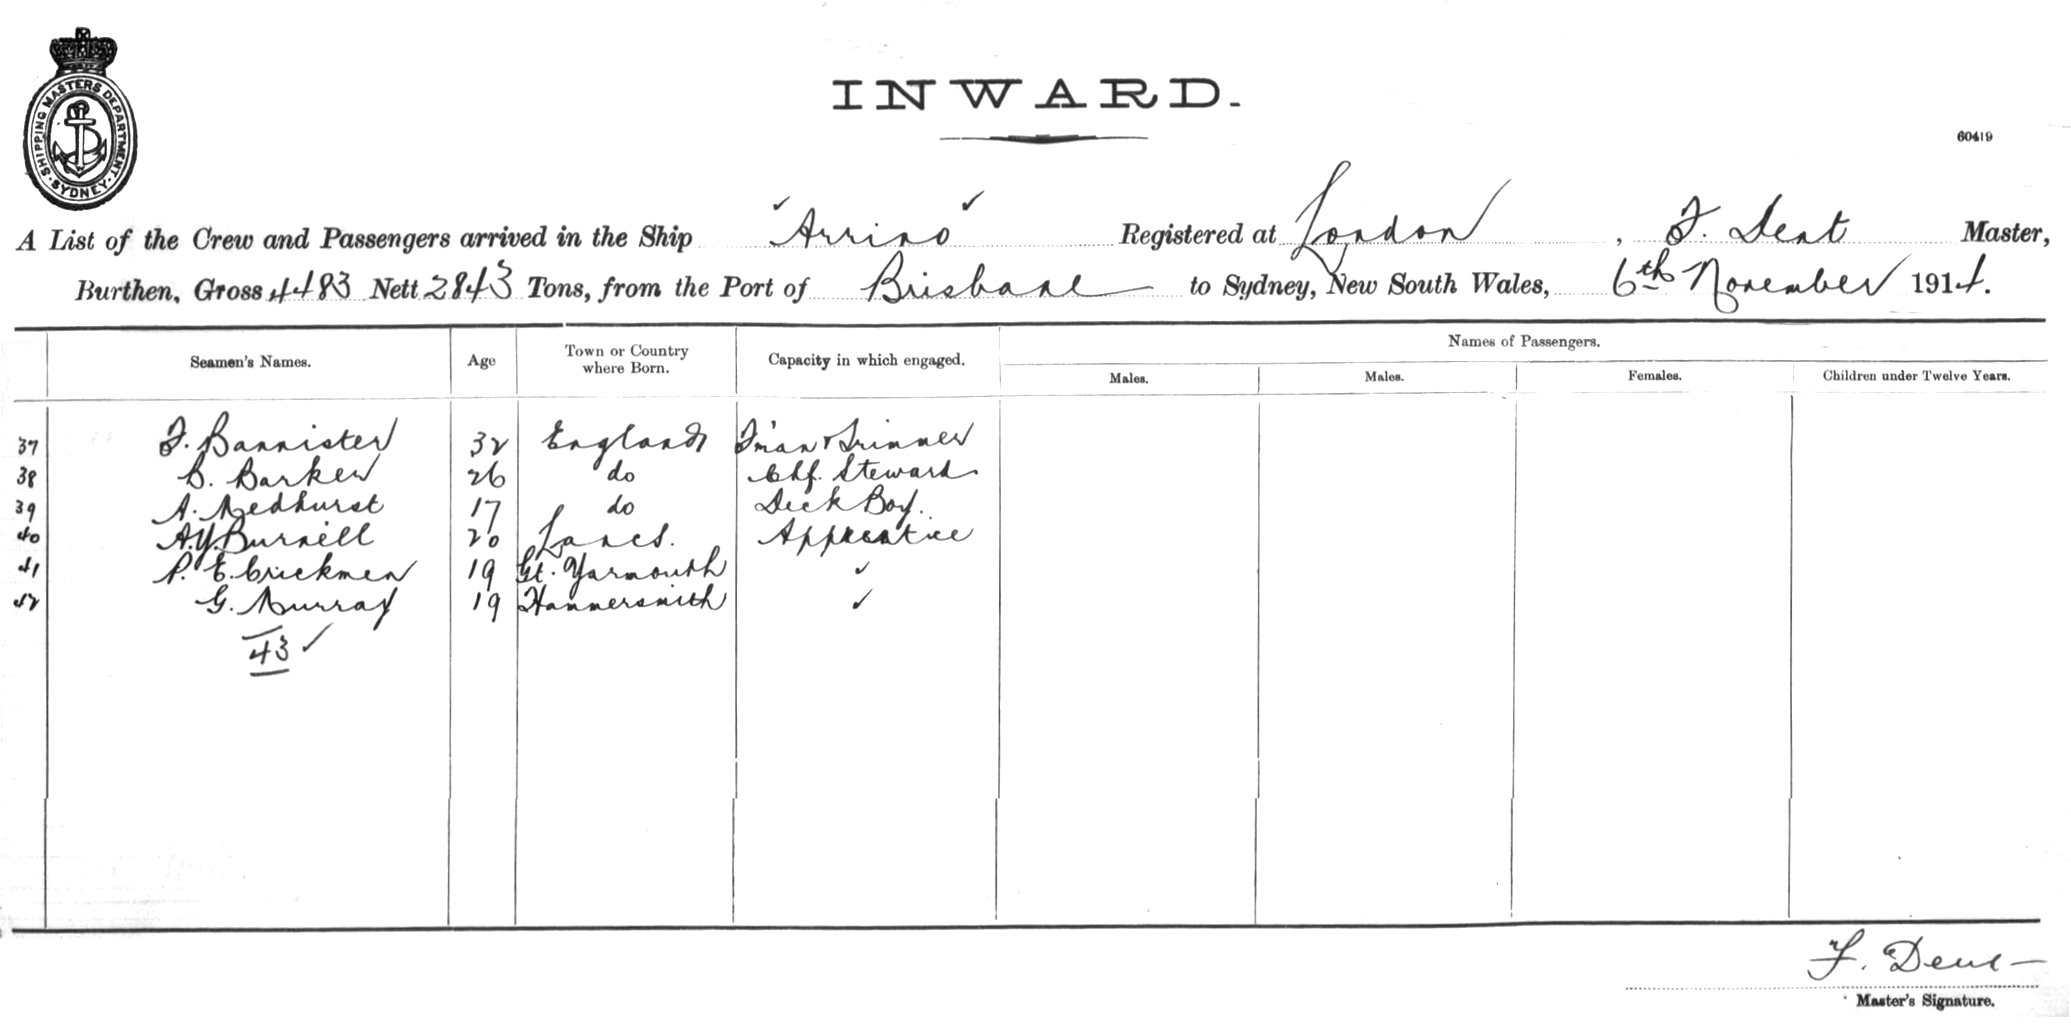 SHIPPING MASTERS DEPARTMENT
SYDNEY
INWARD.
60419
A List of the Crew and Passengers arrived in the Ship "Arrino" Registered at London, F. Dent Master,
Burthen, Gross 4483 Nett 2843 Tons, from the Port of Brisbane to Sydney, New South Wales, 6th November 1914.
Seamen's Names. Age Town or Country where Born. Capacity in which engaged. Names of Passengers.
Males. Males. Females. Children under Twelve Years.
37 F. Bannister 32 England F'man & Trimmer
38 B. Barker 26 do Chf. Steward
39 A. Medhurst 17 do Deck Boy.
40 A.Y. Burnell 20 Lancs. Apprentice
41 P. E. Crickmen 19 Gt. Yarmouth ✓
42 G. Murray 19 Hammersmith ✓
43 ✓
F. Dent
Master's Signature.